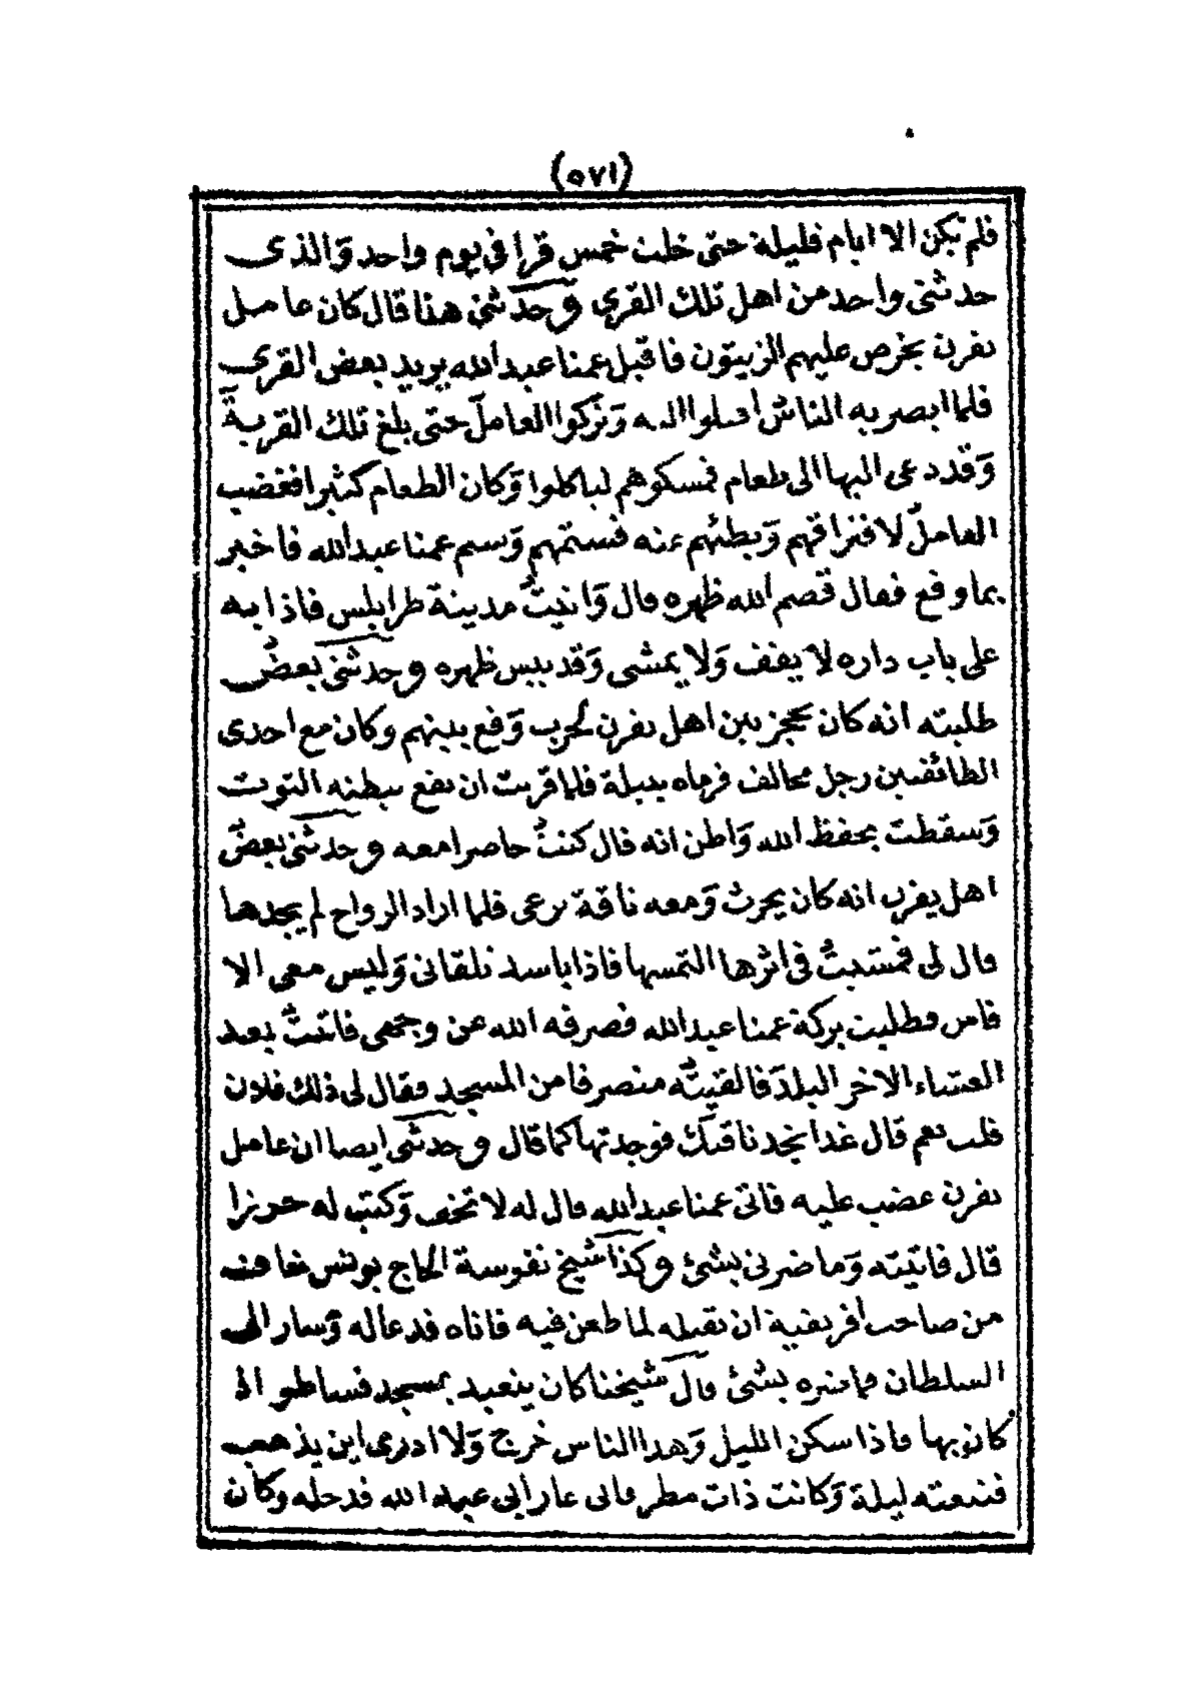 (٥٧١)
فلم تكن الا ايام قليلة حتى خلت خمس قرا في يوم واحد وَالذى
حدثنى واحد من اهل تلك القرى وحدثنى هذا قال كان عامل
يفرن يخرص عليهم الزيتون فاقبل عمنا عبد الله يريد بعض القرى
فلما ابصر به الناسُ اقبلوا اليه وَتركوا العاملَ حتى بلغ تلك القريةَ
وَقد دعى اليها الى طعام فمسكوهم لياكلوا وَكان الطعام كثيرا فغضب
العاملُ لافتراقهم وَبطئهم عنه فشتمهم وَشتم عمنا عبد الله فاخبر
بما وقع فقال قصم الله ظهره قال وَاتيتُ مدينة طرابلس فاذا به
على باب داره لا يقف وَلا يمشى وَقد يبس ظهره وحدثنى بعضُ
طلبته انه كان يحجز بين اهل يفرن لحرب وَقع بينهم وكان مع احدى
الطائفتين رجل مخالف فرماه بنبلة فلما قربت ان تقع ببطنه التوت
وَسقطت بحفظ الله وَاظن انه قال كنتُ حاضرا معه وحدثنى بعضُ
اهل يفرن انه كان يحرث وَمعه ناقة ترعى فلما اراد الرواح لم يجدها
قال لى فمشيتُ فى اثرها التمسها فاذا باسد تلقانى وَليس معى الا
فاس فطلبت بركة عمنا عبد الله فصرفه الله عن وجهى فاتيتُ بعد
العشاء الاخر البلدَ فالقيتُه منصرفا من المسجد فقال لى ذلك فلان
قلت نعم قال غدا تجد ناقتك فوجدتها كما قال وحدثنى ايضا ان عامل
يفرن غضب عليه فاتى عمنا عبد الله قال له لا تخف وَكتب له حرزا
قال فاتيته وَما ضرنى بشئ وكذا شيخ نفوسة الحاج يونس خاف
من صاحب افريقية ان يقتله لما طعن فيه فاتاه فدعا له وَسار الى
السلطان فما ضره بشئ قال شيخنا كان يتعبد بمسجد فساطو الذ
كان بها فاذا سكن الليل وَهدا الناس خرج وَلا ادرى اين يذهب
فتبعته ليلة وَكانت ذات مطر فاتى غار ابى عبد الله فدخله وكان